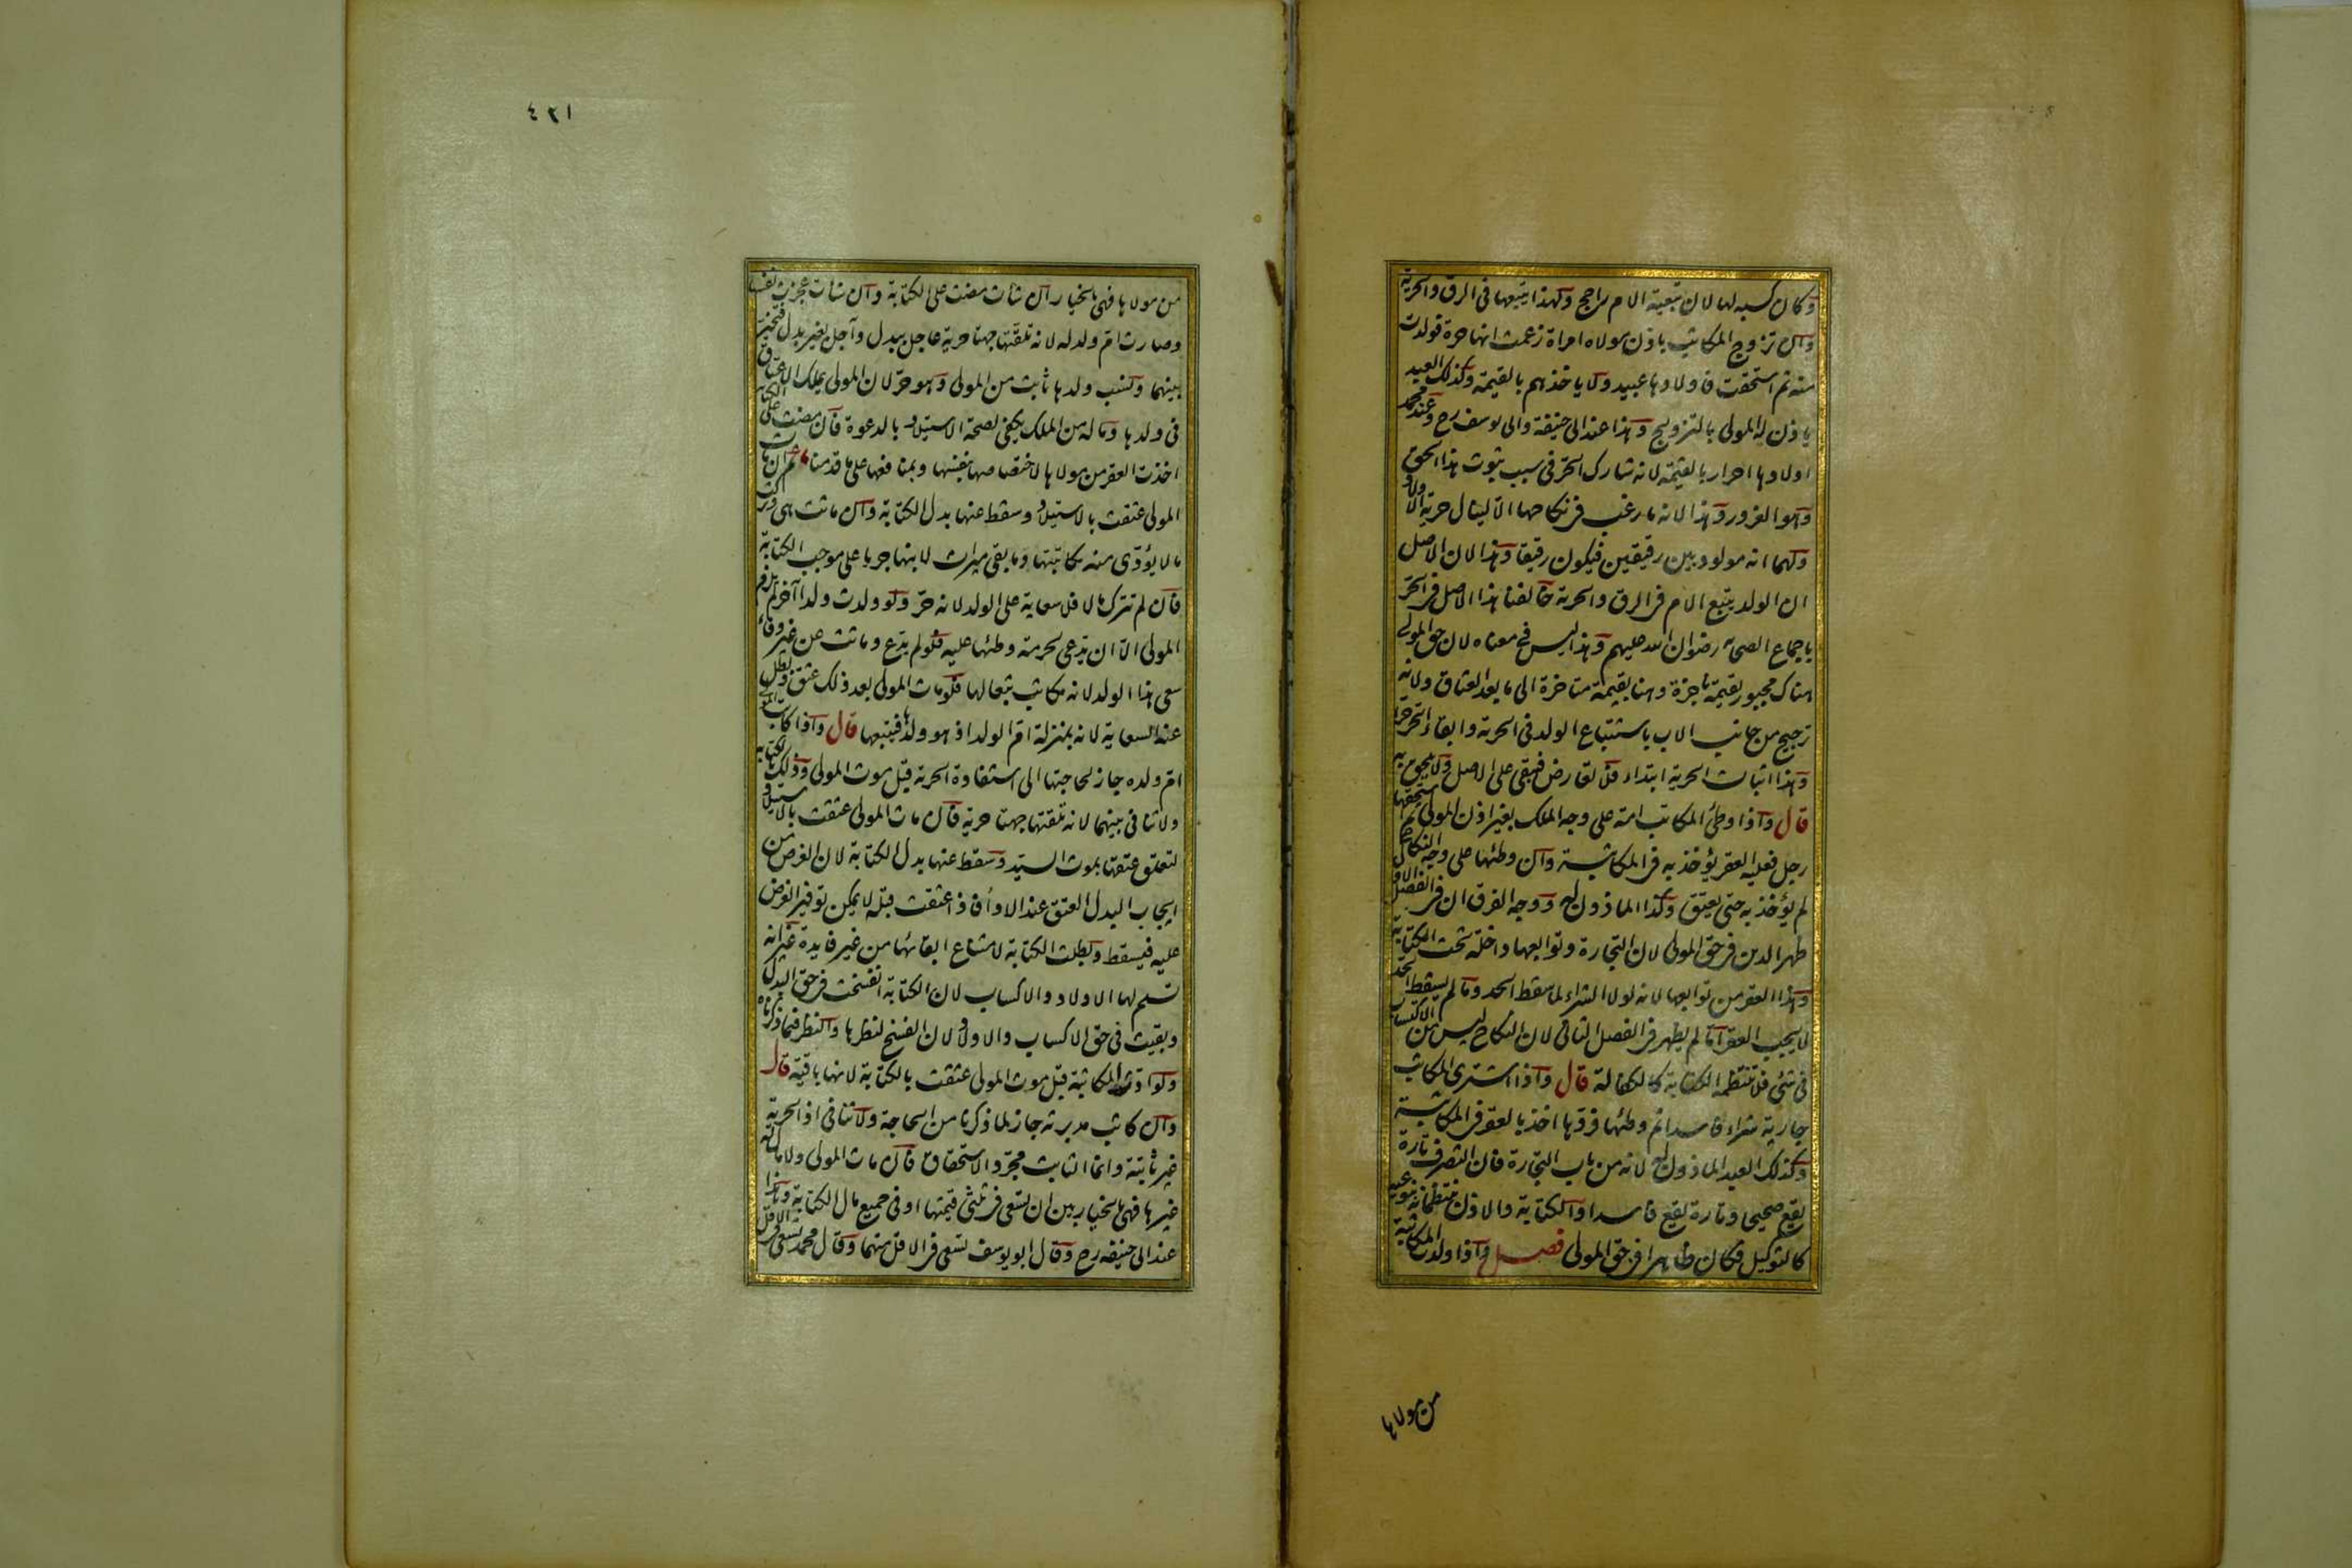 وكان كسبه لها لان تبعية الام راجح ولهذا يتبعها فى الرق والحرية
وان تزوج المكاتب باذن مولاه امراة زعمت انها حرة فولدت
منه ثم استحقت فاولادها عبيد ولا ياخذهم بالقيمة وكذلك العبد
ياذن له المولى بالتزويج وهذا عند ابى حنيفة وابى يوسف رح وعند محمد
اولادها احرار بالقيمة لانه شارك الحر فى سبب ثبوت هذا الحق
وهو الغرور وهذا لانه ما رغب فى نكاحها الا لينال حرية الاولاد
ولهما انه مولود بين رقيقين فيكون رقيقا وهذا لان الاصل
ان الولد يتبع الام فى الرق والحرية خالفنا هذا الاصل فى الحر
باجماع الصحابه رضوان الله عليهم وهذا ليس فى معناه لان حق المولى
هناك مجبور بقيمة ناجزة وهنا بقيمة متاخرة الى ما بعد العتاق ولانه
ترجيح من جانب الاب باستتباع الولد فى الحرية وابقاء الحر حرا
وهذا اثبات الحرية ابتداء فلا تعارض فيبقى على الاصل ولا يلحق به
قال واذا وطئ المكاتب امة على وجه الملك بغير اذن المولى ثم استحقها
رجل فعليه العقر يؤخذ به فى المكاتبة وان وطئها على وجه النكاح
لم يؤخذ به حتى يعتق وكذا الماذون له ووجه الفرق ان فى الفصل الاول
ظهر الدين فى حق المولى لان التجارة وتوابعها داخلة تحت الكتابة
وهذا العقر من توابعها لانه لولا الشراء لما سقط الحد وما لم يسقط الحد
لا يجب العقر اما لم يظهر فى الفصل الثانى لان النكاح ليس من الاكتساب
فى شئ فلا تنتظمه الكتابة كالكفالة قال واذا اشترى المكاتب
جارية شراء فاسدا ثم وطئها فردها اخذ بالعقر فى المكاتبة
وكذلك العبد الماذون له لانه من باب التجارة فان التصرف تارة
يقع صحيحا وتارة يقع فاسدا والكتابة والاذن ينتظمانه بنوعيه
كالتوكيل فكان ظاهرا فى حق المولى فصل واذا ولدت المكاتبة
من مولاها
٤٢١
من مولاها فهى بالخيار ان شات مضت على الكتابة وان شات عجزت نفسها
وصارت ام ولد له لانه تلقتها جهتا حرية عاجل ببدل وآجل بغير بدل فتخير
بينهما ونسب ولدها ثابت من المولى وهو حر لان المولى يملك الاعتاق
فى ولدها وماله من الملك يكفى لصحة الاستيلاد بالدعوة فان مضت على الكتابة
اخذت العقر من مولاها لاختصاصها بنفسها وبمنافعها على ما قدمنا ثم ان مات
المولى عتقت بالاستيلاد وسقط عنها بدل الكتابة وان ماتت هى وتركت
مالا يؤدى منه مكاتبتها وما بقى ميراث لابنها جريا على موجب الكتابة
فان لم تترك مالا فلا سعاية على الولد لانه حر ولو ولدت ولدا آخر لم يلزم
المولى الا ان يدعى لحرمة وطئها عليه فلو لم يدع وماتت من غير وفاء
سعى هذا الولد لانه مكاتب تبعا لها فلو مات المولى بعد ذلك عتق وبطل
عنه السعاية لانه بمنزلة ام الولد اذ هو ولدها فيتبعها قال واذا كاتب المولى
ام ولده جاز لحاجتها الى استفادة الحرية قبل موت المولى وذلك بالكتابة
ولا تنافى بينهما لانه تلقتها جهتا حرية فان مات المولى عتقت بالاستيلاد
لتعلق عتقها بموت السيد وسقط عنها بدل الكتابة لان الغرض من
ايجاب البدل العتق عند الاداء فاذا عتقت قبله لا يمكن توفير الغرض
عليه فيسقط وبطلت الكتابة لامتناع ابقائها من غير فايدة غير انه
تسلم لها الاولاد والاكساب لان الكتابة انفسخت فى حق البدل
وبقيت فى حق الاكساب والاولاد لان الفسخ لنظرها والنظر فيما ذكرناه
ولو ادت المكاتبة قبل موت المولى عتقت بالكتابة لانها باقية قال
وان كاتب مدبرته جاز لما ذكرنا من الحاجة ولا تنافى اذ الحرية
غير ثابتة وانما الثابت مجرد الاستحقاق فان مات المولى ولا مال له
غيرها فهى بالخيار بين ان تسعى فى ثلثى قيمتها او فى جميع مال الكتابة وهذا
عند ابى حنيفة رح وقال ابو يوسف تسعى فى الاقل منهما وقال محمد تسعى فى الاقل